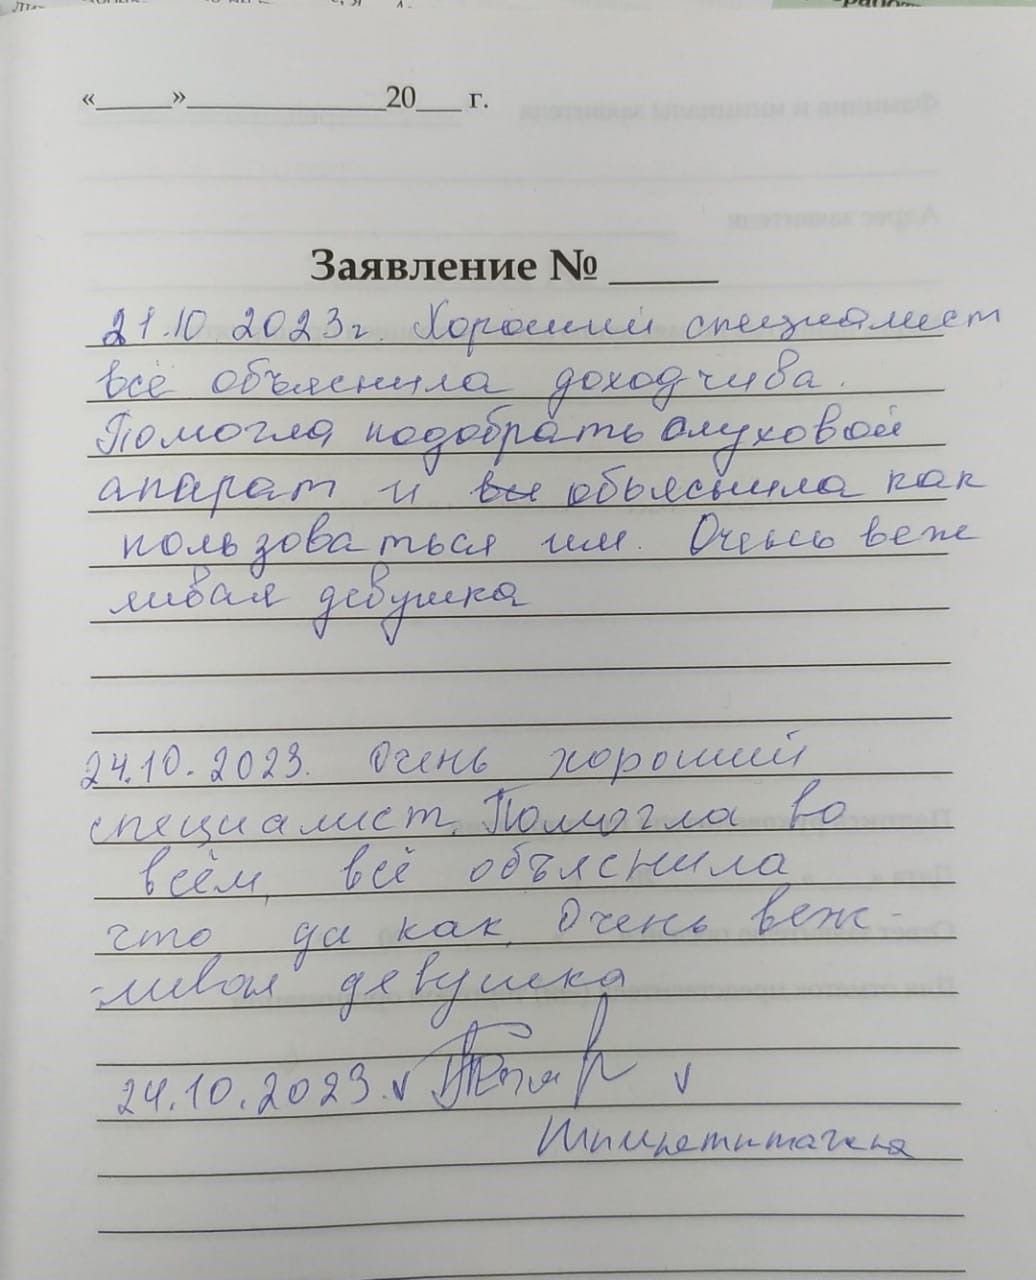 «____»____________20___ г.
Заявление № _____
21.10.2023г. Хороший специалист
всё объяснила доходчива.
Помогла подобрать слуховой
апарат и объяснила как
пользоваться им. Очень веж
ливая девушка
24.10.2023. Очень хороший
специалист. Помогла во
всём, всё объяснила
что да как, Очень веж-
-ливая девушка
24.10.2023.